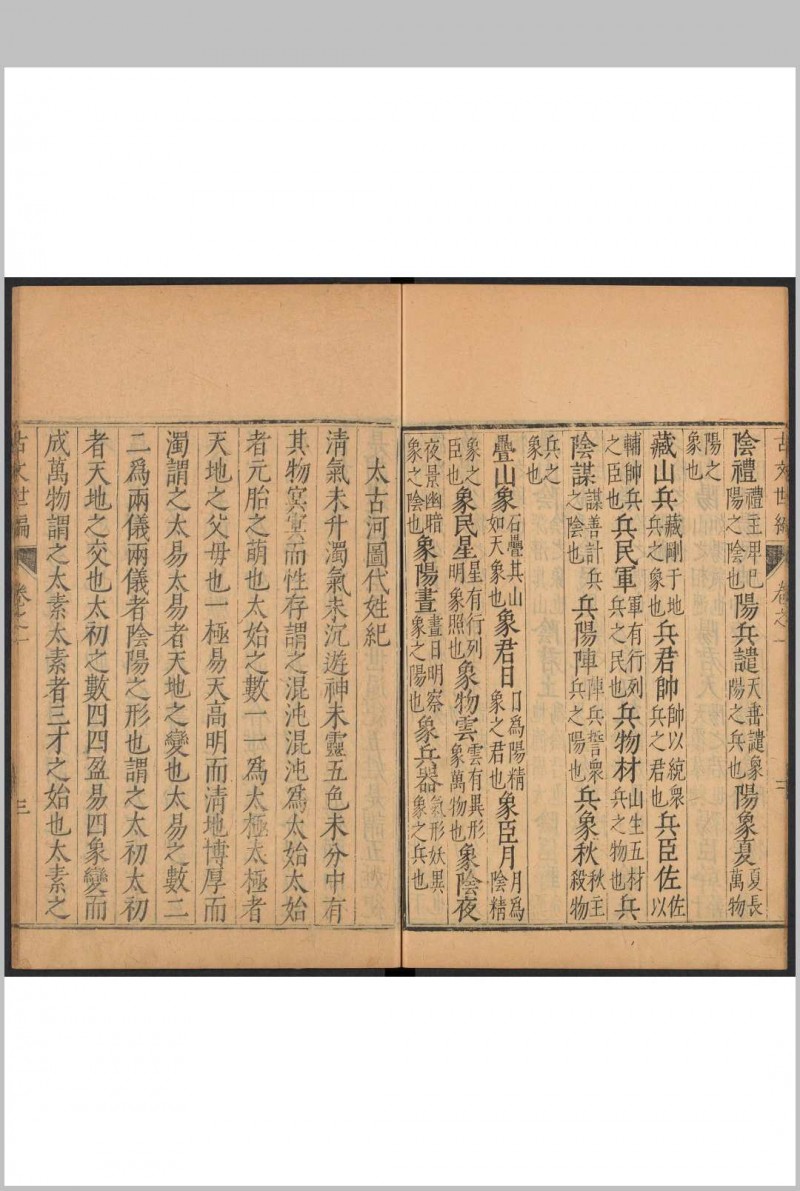 古文世編 卷之一 二
陰禮禮主卑巳陽之陰也陽兵譴天垂譴象陽之兵也陽象夏夏長萬物
陽之象也
藏山兵藏剛于地兵之象也兵君帥帥以統衆兵之君也兵臣佐佐以
輔帥兵之臣也兵民軍軍有行列兵之民也兵物材山生五材兵之物也兵
陰謀謀善計兵之陰也兵陽陣陣兵誓衆兵之陽也兵象秋秋主殺物
兵之象也
疊山象石疊其山如天象也象君日日爲陽精象之君也象臣月月爲陰精
象之臣也象民星星有行列明象照也象物雲雲有異形象萬物也象陰夜
夜景幽暗象之陰也象陽晝晝日明察象之陽也象兵器氣形妖異象之兵也
太古河圖代姓紀
清氣未升濁氣未沉遊神未靈五色未分中有
其物冥冥而性存謂之混沌混沌爲太始太始
者元胎之萌也太始之數一一爲太極太極者
天地之父母也一極易天高明而清地博厚而
濁謂之太易太易者天地之變也太易之數二
二爲兩儀兩儀者陰陽之形也謂之太初太初
者天地之交也太初之數四四盈易四象變而
成萬物謂之太素太素者三才之始也太素之
古文世編 卷之一 三